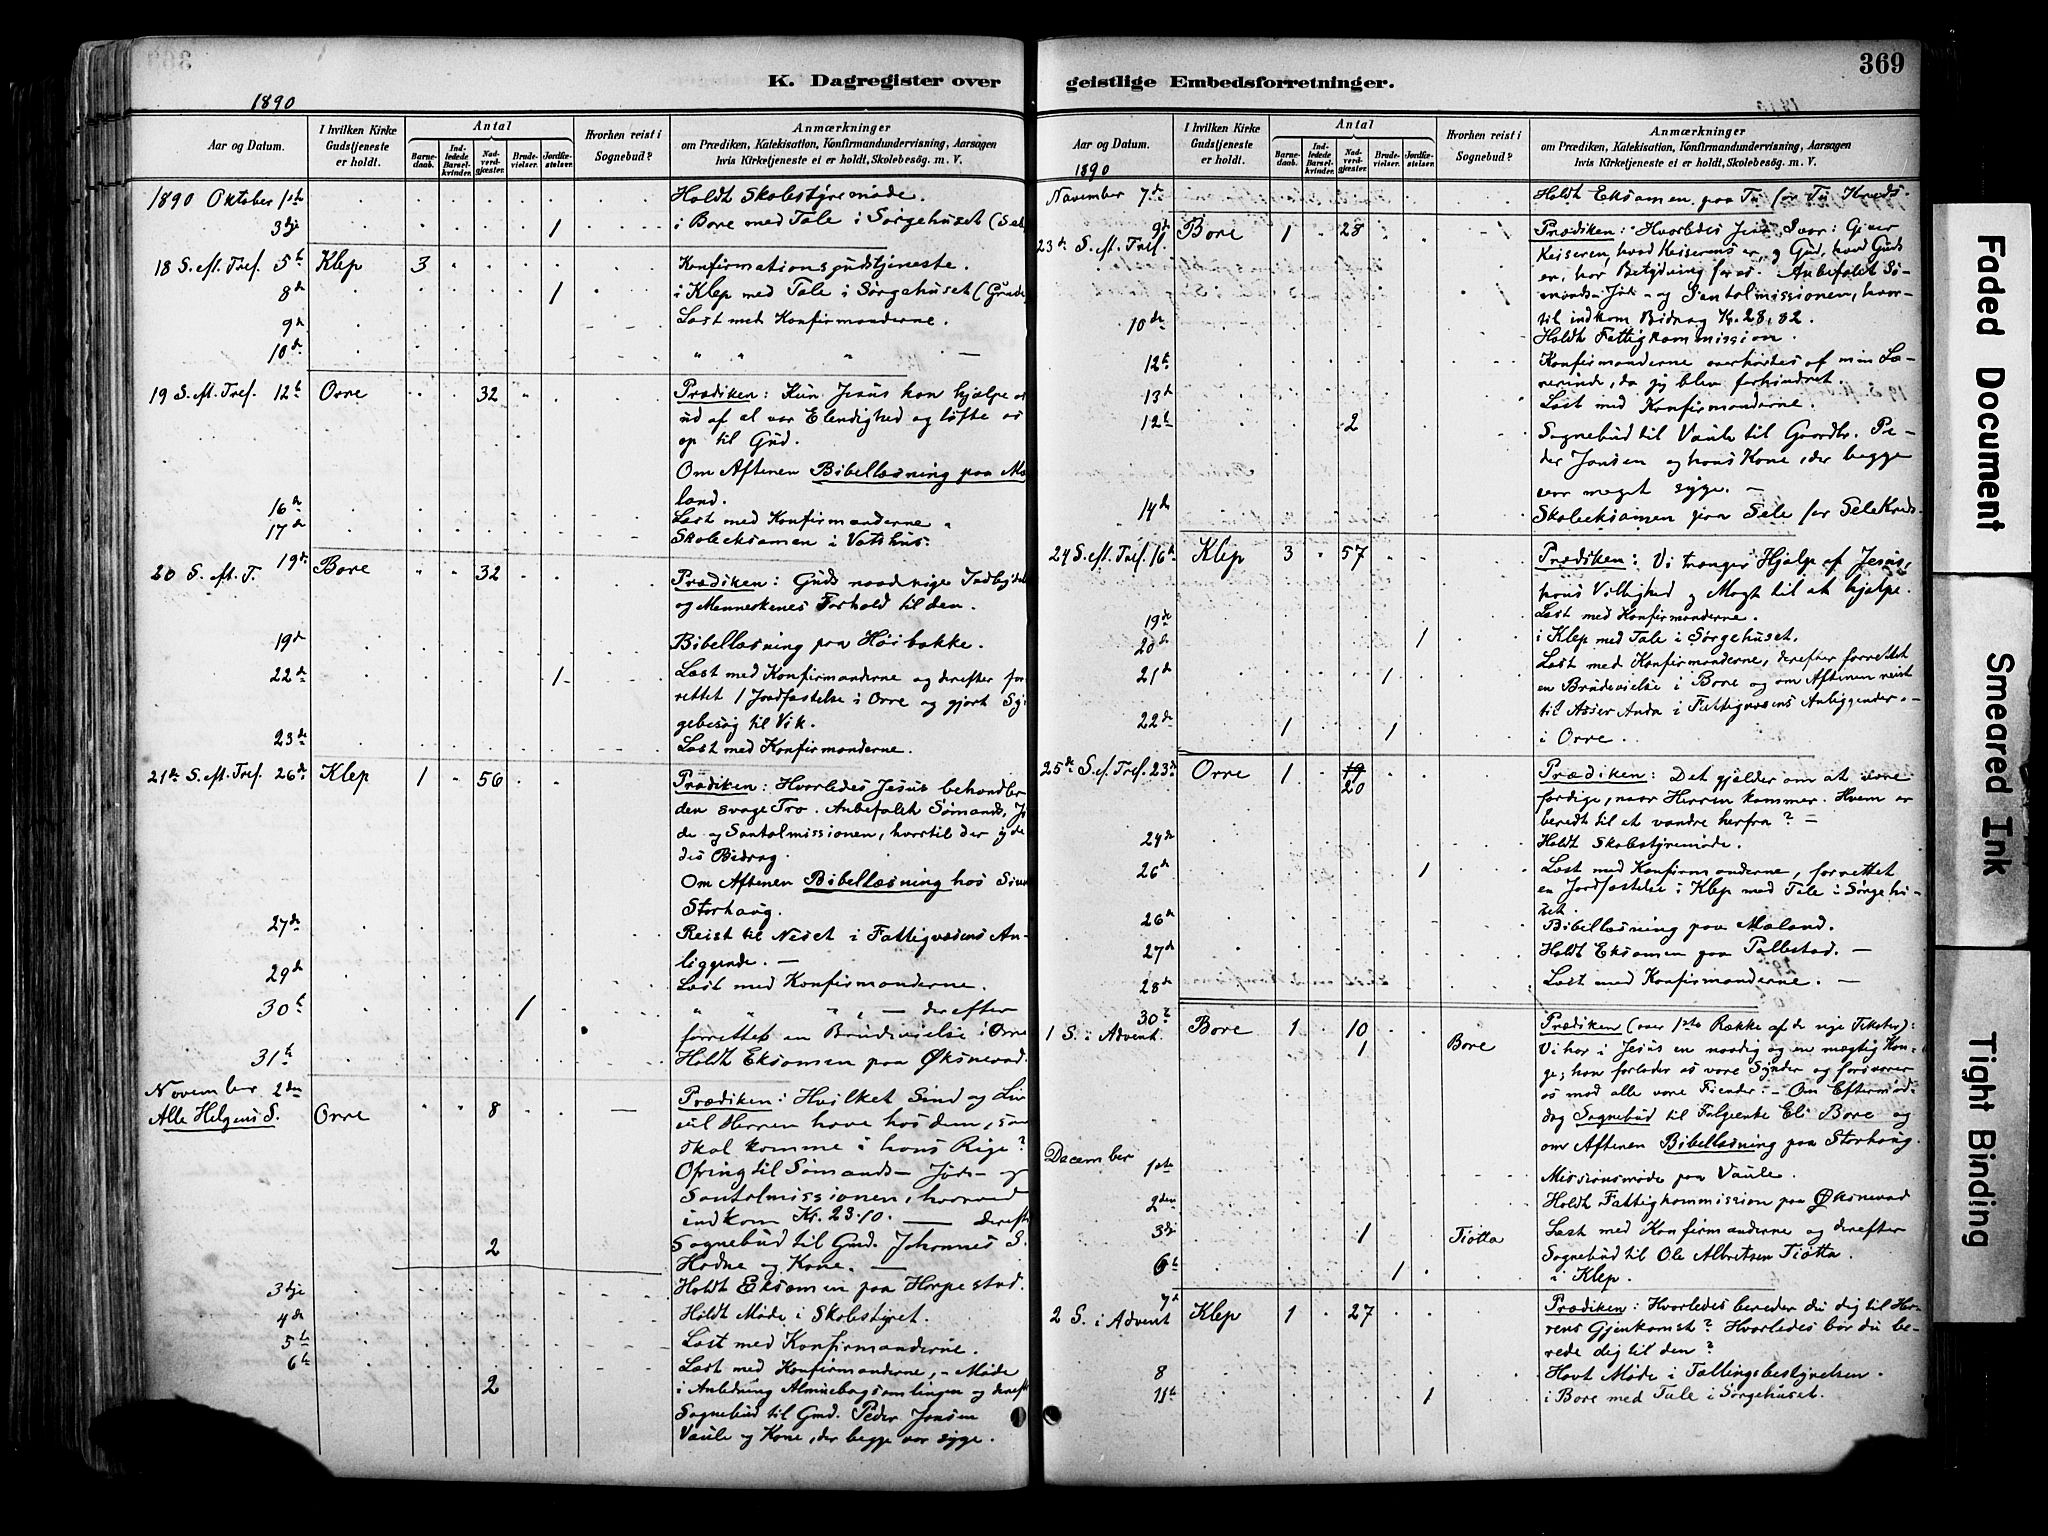 369
K. Dagregister over geistlige Embedsforretninger.
1890
Aar og Datum.
I hvilken Kirke Gudstjeneste er holdt.
Antal
Barnedaab.
Indledede Barselkvinder.
Nadverdgjæster.
Brudevielser.
Jordfæstelser.
Hvorhen reist i Sognebud?
Anmærkninger
om Prædiken, Katekisation, Konfirmandundervisning, Aarsagen
hvis Kirketjeneste ei er holdt, Skolebesøg. m. V.
1890 Oktober 1ste Holdt Skolestyremøde.
3dje 1 i Bore med Tale i Sørgehuset
18 S. eft. Tref. 5te Klep 3 Konfirmationsgudstjeneste.
8de 1 i Klep med Tale i Sørgehuset
9de Læst med Konfirmanderne.
10de " " " —
19 S. eft. Tref. 12te Orre 32 Prædiken: Kun Jesus kan hjælpe os
ud af al vor Elendighed og løfte os
op til Gud.
Om Aftenen Bibellæsning paa Mæ
land.
16de Læst med Konfirmanderne
17de Skoleeksamen i Vatshus.
20 S. eft. T. 19de Bore 32 Prædiken: Guds naaderige Indbydelse
og Menneskenes Forhold til den.
19de Bibellæsning paa Høibakke.
22de 1 Læst med Konfirmanderne og derefter for
rettet 1 Jordfæstelse i Orre og gjort Sy
gebesøg til Vik.
23de Læst med Konfirmanderne.
21de S. eft. Tref. 26de Klep 1 56 Prædiken: Hvorledes Jesus behandler
den svage Tro. Anbefalet Sømands, Jø
de- og Santalmissionen, hvortil der ydedes Bidrag.
Om Aftenen Bibellæsning hos
Storhaug.
27de Reist til Neset i Fattigvæsens An-
liggende. —
29de Læst med Konfirmanderne.
30te 1 " " " — derefter
forrettet en Brudevielse i Orre
31te Holdt Eksamen paa Øksnevad.
November 2den
Alle Helgens S. Orre 8 Prædiken: Hvilket Sind og Liv
vil Herren have hos dem, som
skal komme i hans Rige?
Ofring til Sømands- Jøde- og
Santalmissionen, hvorved
indkom Kr. 23.10. — derefter
2 Sognebud til Gmd. Johannes S.
Hodne og Kone. —
3dje Holdt Eksamen paa Horpestad.
4de Holdt Møde i Skolestyret.
5te Læst med Konfirmanderne.
6te Læst med Konfirmanderne, - Møde
2 i Anledning Alminebogsamlingen og derefter
Sognebud til Gmd. Peder Jonsen
Vaule og Kone, der begge var syge.
369
1890
Aar og Datum.
I hvilken Kirke Gudstjeneste er holdt.
Antal
Barnedaab.
Indledede Barselkvinder.
Nadverdgjæster.
Brudevielser.
Jordfæstelser.
Hvorhen reist i Sognebud?
Anmærkninger
om Prædiken, Katekisation, Konfirmandundervisning, Aarsagen
hvis Kirketjeneste ei er holdt, Skolebesøg. m. V.
November 7de Holdt Eksamen paa Tu for Tu Kreds.
23de S. eft. Tref. 9de Bore 1 28 Prædiken: Hvorledes Jesu Svar: Giver
Keiseren, hvad Keiserens er, og Gud, hvad Guds
er, har Betydning for os. Anbefalet Sø-
mands- Jøde- og Santalmissionen, hvor-
til indkom Bidrag Kr. 28,82.
10de Holdt Fattigkommission.
12te Konfirmanderne overhørtes af min Læ-
rerinde, da jeg blev forhindret
13de Læst med Konfirmanderne.
12te 2 Sognebud til Vaule til Gaardbr. Pe-
der Jonsen og hans Kone, der begge
var meget syge. —
14de Skoleeksamen paa Sele for Sele Kreds.
24 S. eft. Tref. 16de Klep 3 57 Prædiken: Vi trænger Hjælp af Jesus,
hans Villighed og Magt til at hjælpe.
19de Læst med Konfirmanderne.
20de 1 i Klep med Tale i Sørgehuset.
21de 1 Læst med Konfirmanderne, derefter forrettet
en Brudevielse i Bore og om Aftenen reist
til Asser Anda i Fattigvæsens Anliggender. -
22de 1 1 i Orre.
25de S. ef. Tref. 23de Orre 1 19 20 Prædiken: Det gjælder om at være
færdige, naar Herren kommer. Hvem er
beredt til at vandre herfra? —
24de Holdt Skolestyremøde.
26de 1 Læst med Konfirmanderne, forrettet
en Jordfæstelse i Klep med Tale i Sørgehu-
set.
26de Bibellæsning paa Mæland.
27de Holdt Eksamen paa Pollestad. —
28de Læst med Konfirmanderne. —
30te
1 S. i Advent. Bore 1 10 Prædiken (over 1ste Række af de nye Tekster):
1 Bore Vi har i Jesus en naadig og en mægtig Kon-
ge; han forlader os vore Synder og forsvarer
os mod alle vore Fiender. - Om Eftermid-
dag Sognebud til Eli Bore og
om Aftenen Bibellæsning paa Storhaug.
December 1ste Missionsmøde paa Vaule.
2den Holdt Fattigkommission paa Øksnevad
3dje 1 Tiøtta Læst med Konfirmanderne og derefter
Sognebud til Ole Albretsen Tiøtta.
6te 1 i Klep.
7de
2 S. i Advent Klep 1 27 Prædiken: Hvorledes bereder du dig til Her-
rens Gjenkomst? Hvorledes bør du be-
rede dig til den?
8 Havt Møde i Tællingsbestyrelsen.
11te 1 i Bore med Tale i Sørgehuset.
Faded Document
Smeared Ink
Tight Binding